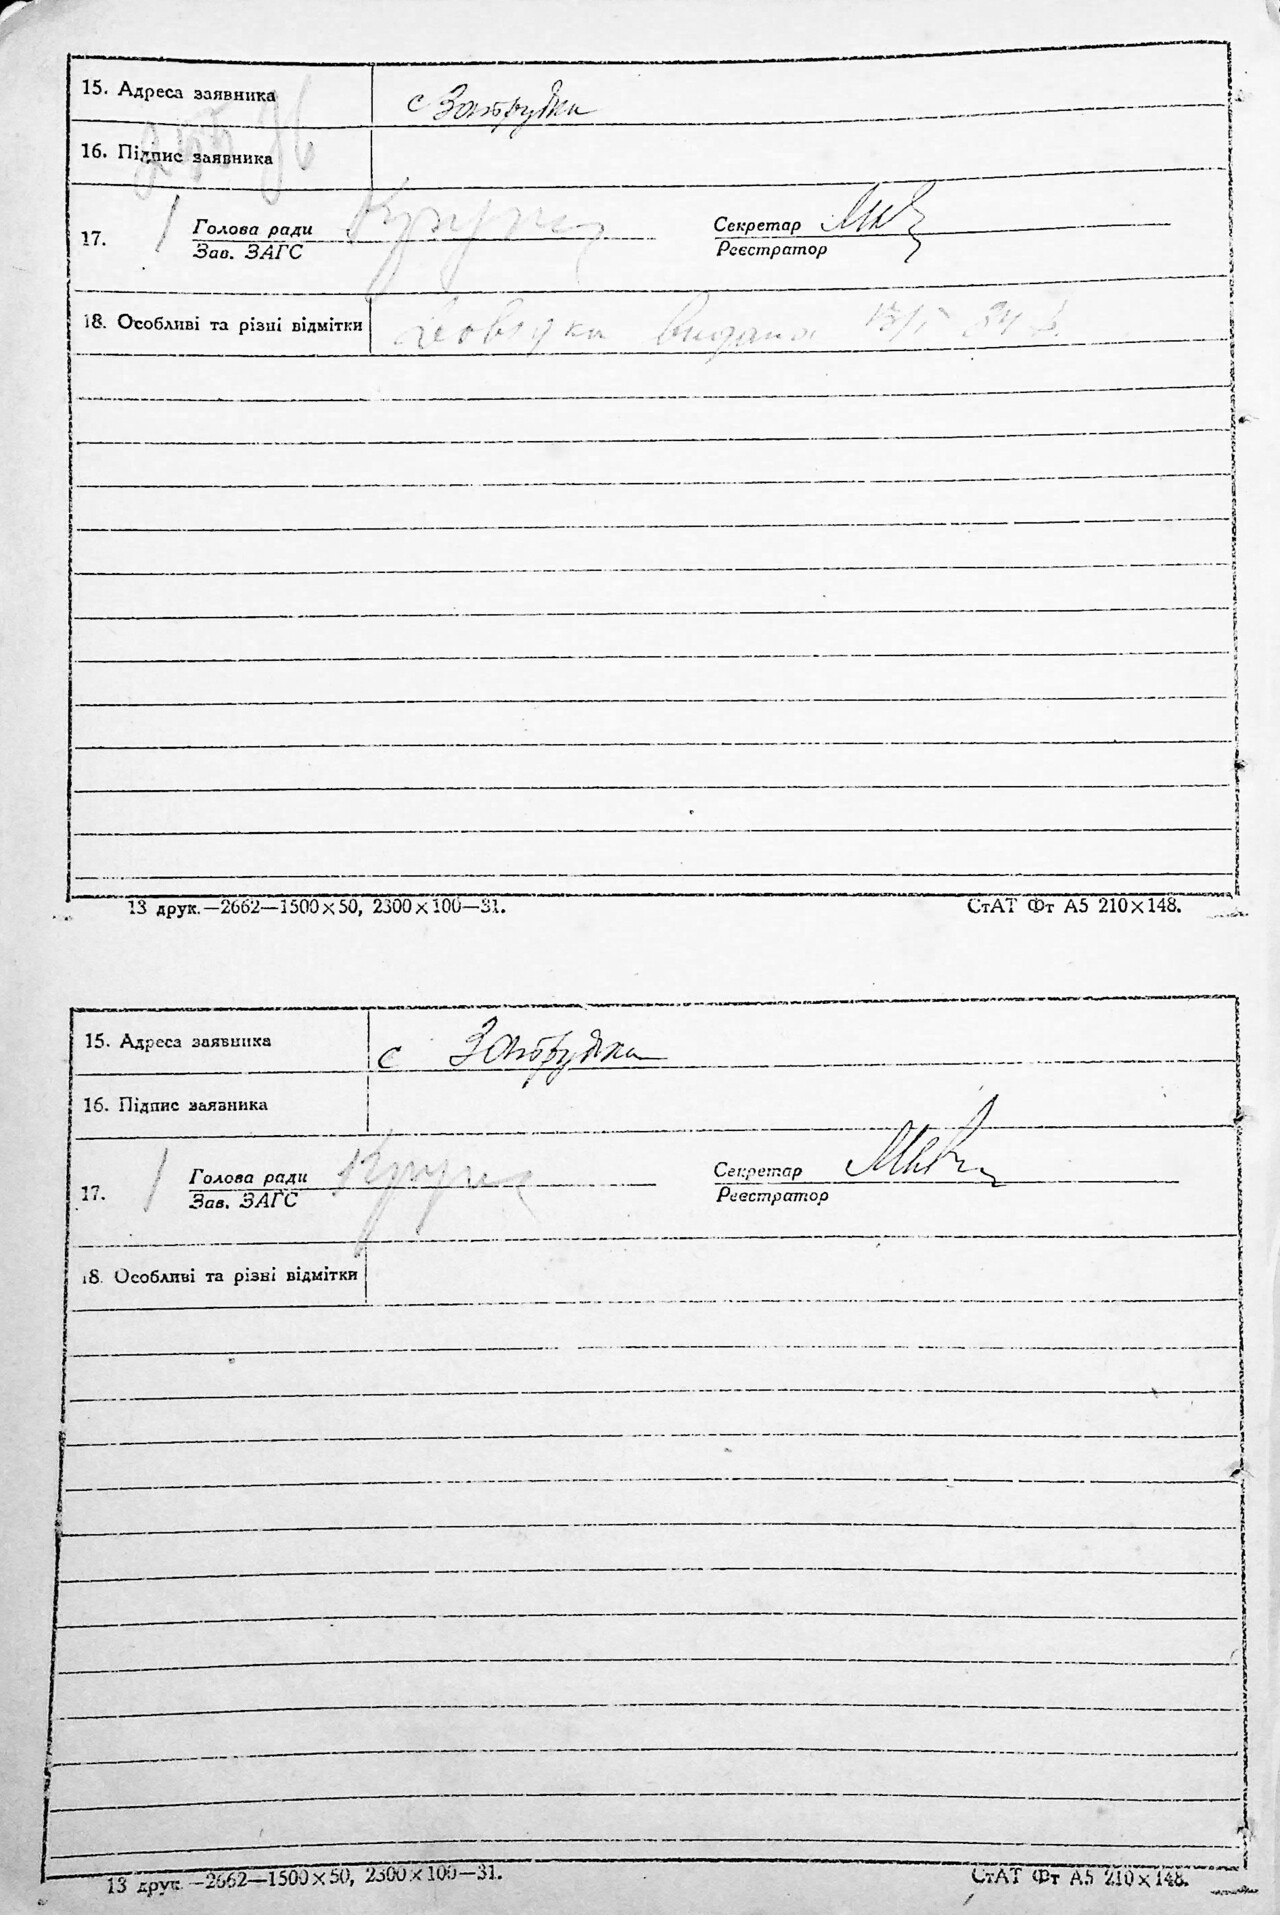 15. Адреса заявника с Затрудка
16. Підпис заявника
17. Голова ради Секретар
Зав. ЗАГС Реєстратор
18. Особливі та різні відмітки Довідка видана 34
13 друк.—2662—1500×50, 2300×100—31. СтАТ Фт А5 210×148.
15. Адреса заявника с Затрудка
16. Підпис заявника
17. Голова ради Секретар
Зав. ЗАГС Реєстратор
18. Особливі та різні відмітки
13 друк.—2662—1500×50, 2300×100—31. СтАТ Фт А5 210×148.